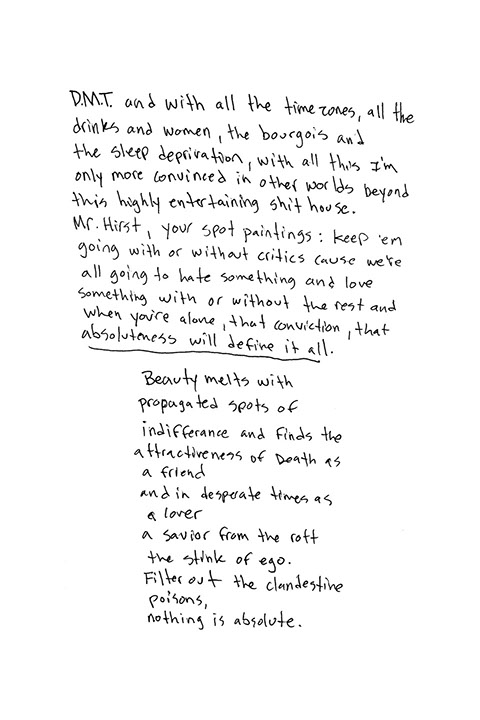 D.M.T. and with all the time zones, all the
drinks and women, the bourgois and
the sleep deprivation, with all this I'm
only more convinced in other worlds beyond
this highly entertaining shit house.
Mr. Hirst, your spot paintings: keep 'em
going with or without critics cause we're
all going to hate something and love
something with or without the rest and
when you're alone, that conviction, that
absoluteness will define it all.
Beauty melts with
propagated spots of
indifferance and finds the
attractiveness of Death as
a friend
and in desperate times as
a lover
a savior from the rott
the stink of ego.
Filter out the clandestine
poisons,
nothing is absolute.